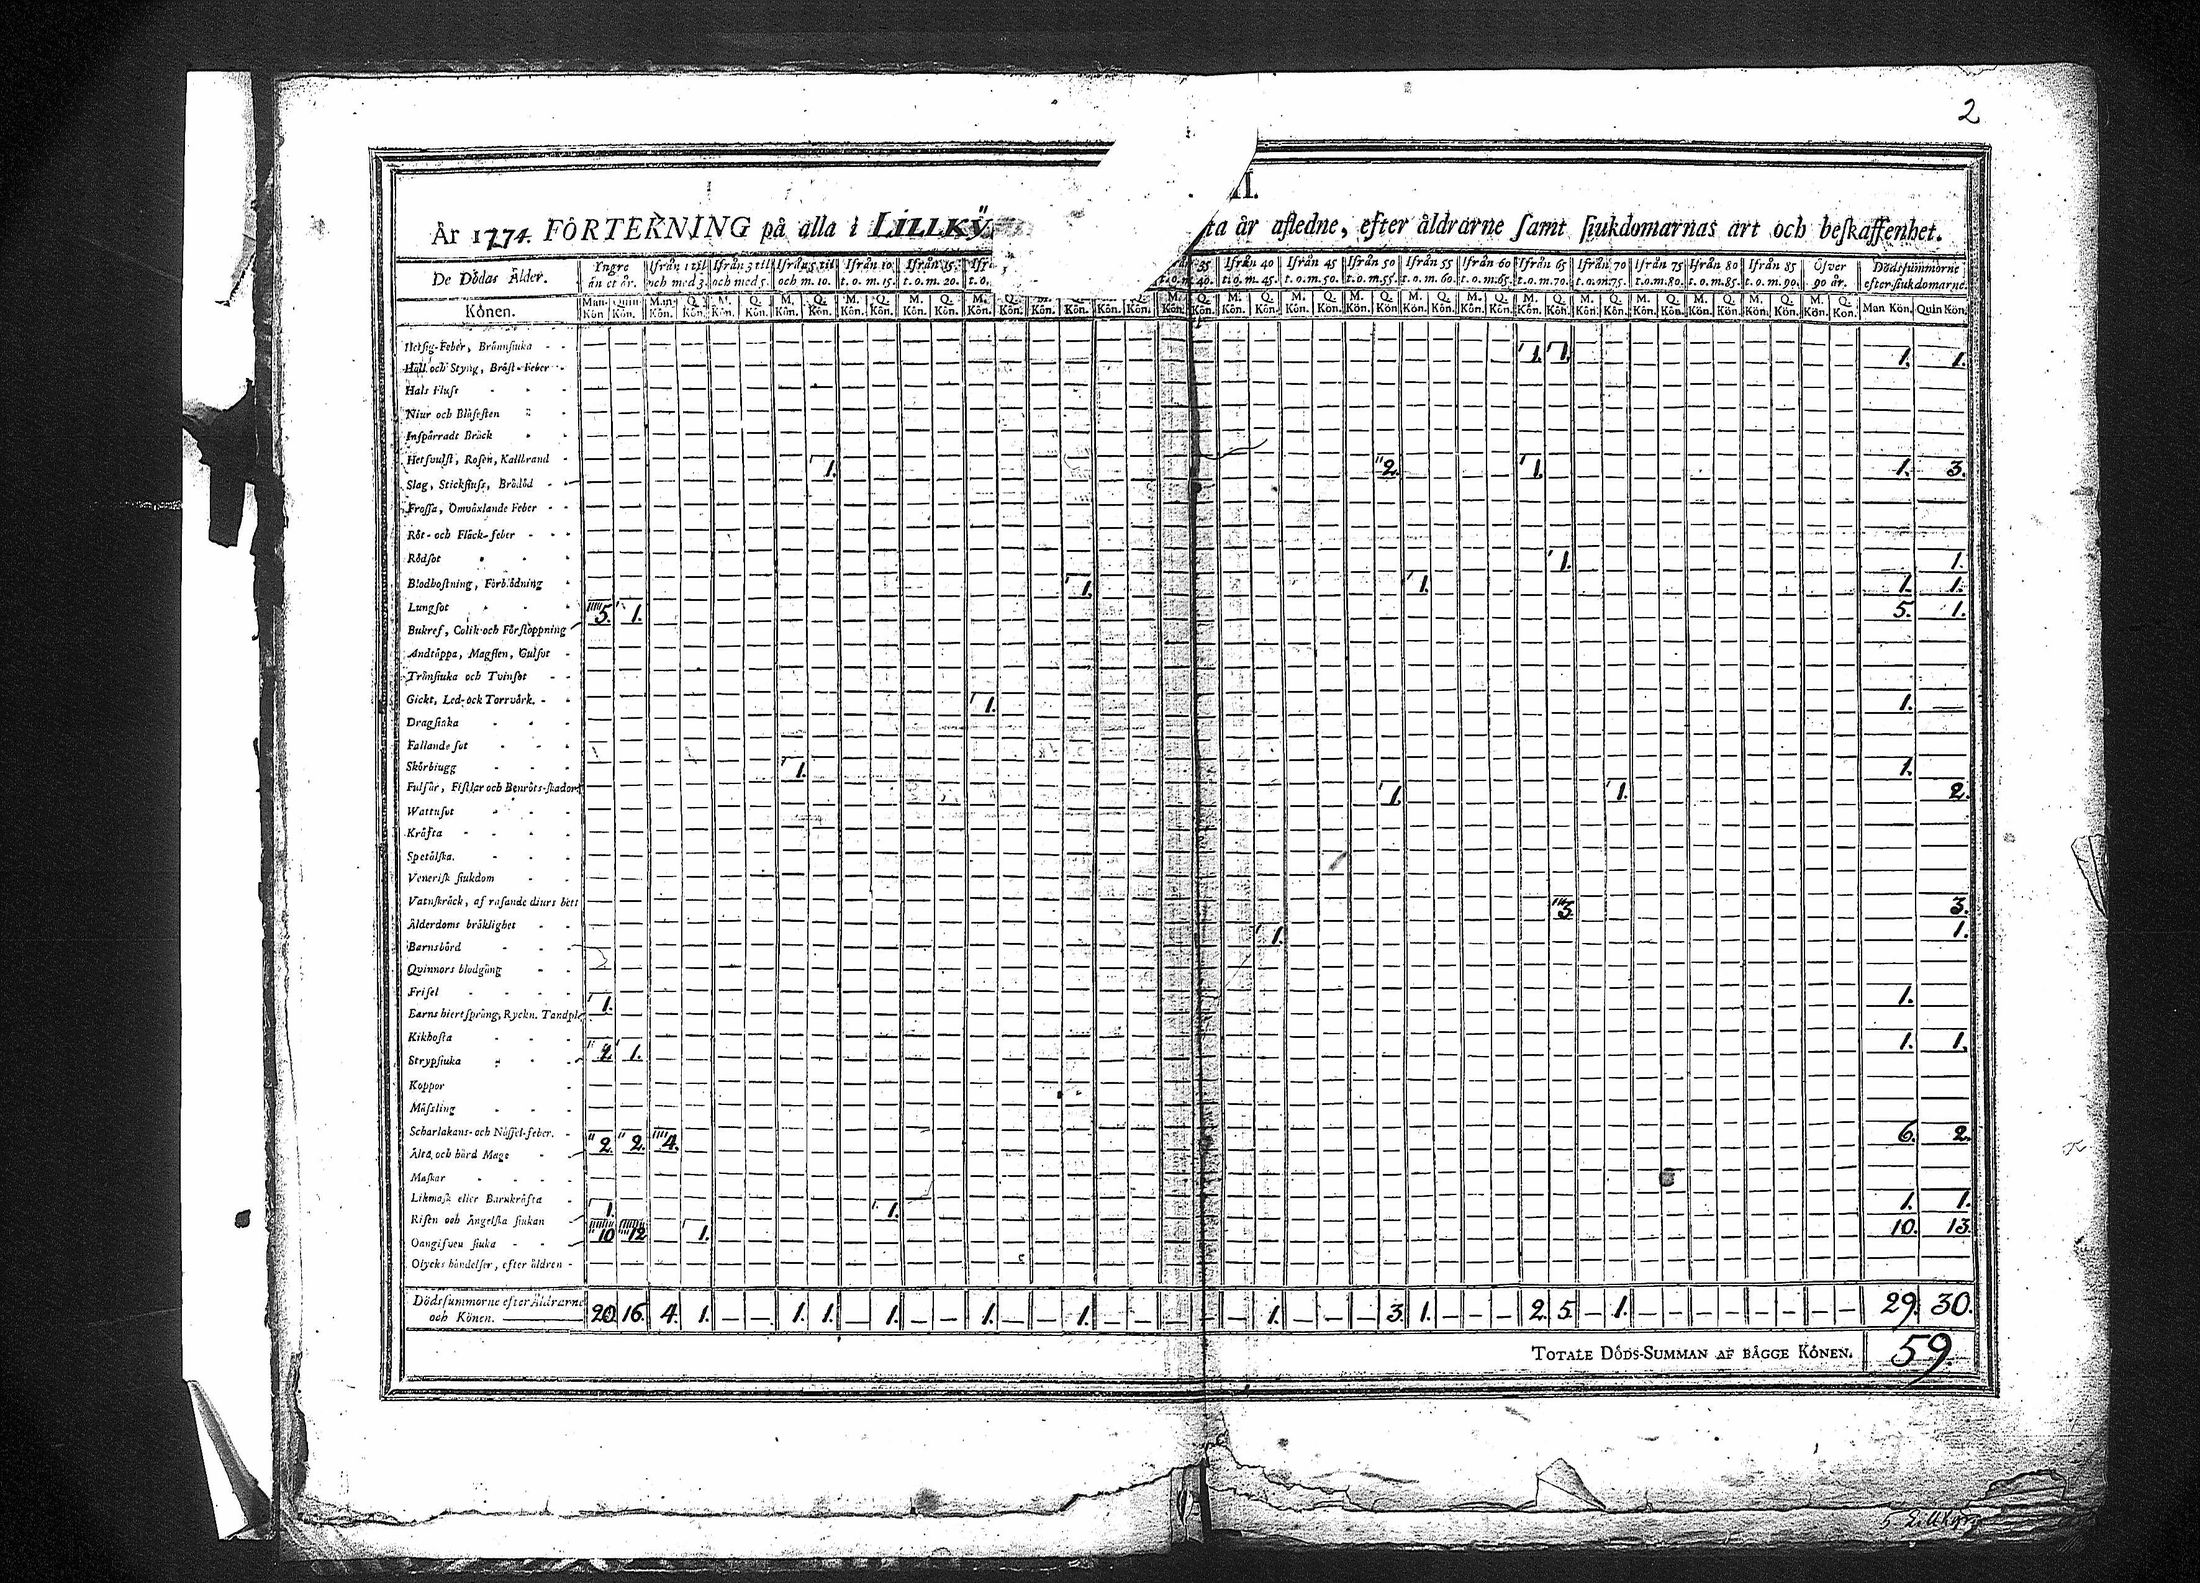 2
II.
År 1774. FÖRTEKNING på alla i LILLKY
ta år afledne, efter åldrarne samt siukdomarnas art och beskaffenhet.
De Dödas Ålder. Yngre än et år. Ifrån 1 til och med 3. Ifrån 3 til och med 5. Ifrån 5 til och m. 10. Ifrån 10 t. o. m. 15. Ifrån 15 t. o. m. 20. Ifrå t. o. 35 t. o. m. 40. Ifrån 40 t. o. m. 45. Ifrån 45 t. o. m. 50. Ifrån 50 t. o. m. 55. Ifrån 55 t. o. m. 60. Ifrån 60 t. o. m. 65. Ifrån 65 t. o. m. 70. Ifrån 70 t. o. m. 75. Ifrån 75 t. o. m. 80. Ifrån 80 t. o. m. 85. Ifrån 85 t. o. m. 90. Öfver 90 år. Dödssummorne efter siukdomarne.
Könen. Man Kön Quin Kön. Man Kön. Q. Kön. M. Kön. Q. Kön. M. Kön. Q. Kön. M. Kön. Q. Kön. Man Kön. Quin Kön.
Hetsig-Feber, Brännsiuka
Håll och Styng, Bröst-Feber 1. 1. 1. 1.
Hals Fluss
Niur och Blåsesten
Inspärradt Bråck
Hetsvulst, Rosen, Kallbrand
Slag, Stickfluss, Brådöd 1. 2. 1. 1. 3.
Frossa, Omväxlande Feber
Röt- och Fläck-feber
Rödsot
Blodhostning, Förblödning 1. 1.
Lungsot 1. 1. 1. 1.
Bukref, Colik och Förstoppning 5. 1. 5. 1.
Andtäppa, Magsten, Gulsot
Trånsiuka och Tvinsot
Gickt, Led- ock Torrvärk.
Dragsiuka 1. 1.
Fallande sot
Skörbiugg
Fulsår, Fistlar och Benröts-skador 1. 1.
Wattusot 1. 1. 2.
Kräfta
Spetälska.
Venerisk siukdom
Vatuskräck, af rasande diurs bett
Ålderdoms bräklighet 3. 3.
Barnsbörd 1. 1.
Qvinnors blodgång
Frisel
Barns hiertsprång, Ryckn. Tandpl 1. 1.
Kikhosta
Strypsiuka 1. 1. 1.
Koppor
Mässling
Scharlakans- och Nässel-feber.
Älta, och hård Mage 2. 2. 4. 6. 2.
Maskar
Likmask eller Barnkräfta
Risen och Ängelska siukan 1. 1. 1. 1.
Oangifven siuka 10 12 1. 10. 13.
Olycks händelser, efter åldren
Dödssummorne efter Åldrarne och Könen. 20 16. 4. 1. 1. 1. 1. 1. 1. 1. 3. 1. 2. 5. 1. 29. 30.
TOTALE DÖDS-SUMMAN AF BÅGGE KÖNEN. 59.